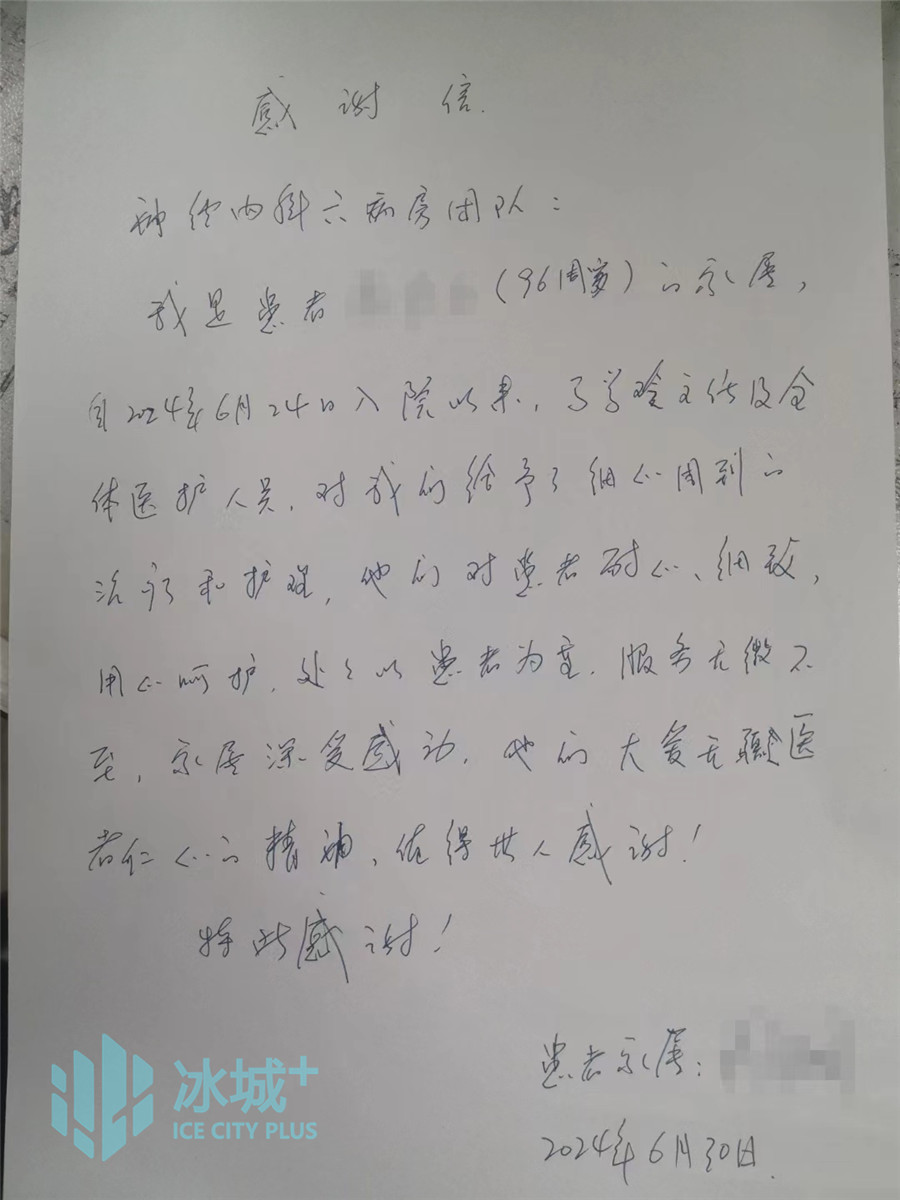 感谢信.
神经内科六病房团队：
我是患者（96周岁）的家属，
自2024年6月24日入院以来，主任及全
体医护人员，对我们给予了细心周到的
治疗和护理，他们对患者耐心、细致，
用心呵护，处处以患者为重，服务无微不
至，家属深受感动，他们大爱无疆医
者仁心的精神，值得世人感谢！
特此感谢！
患者家属：
2024年6月30日.
冰城+
ICE CITY PLUS